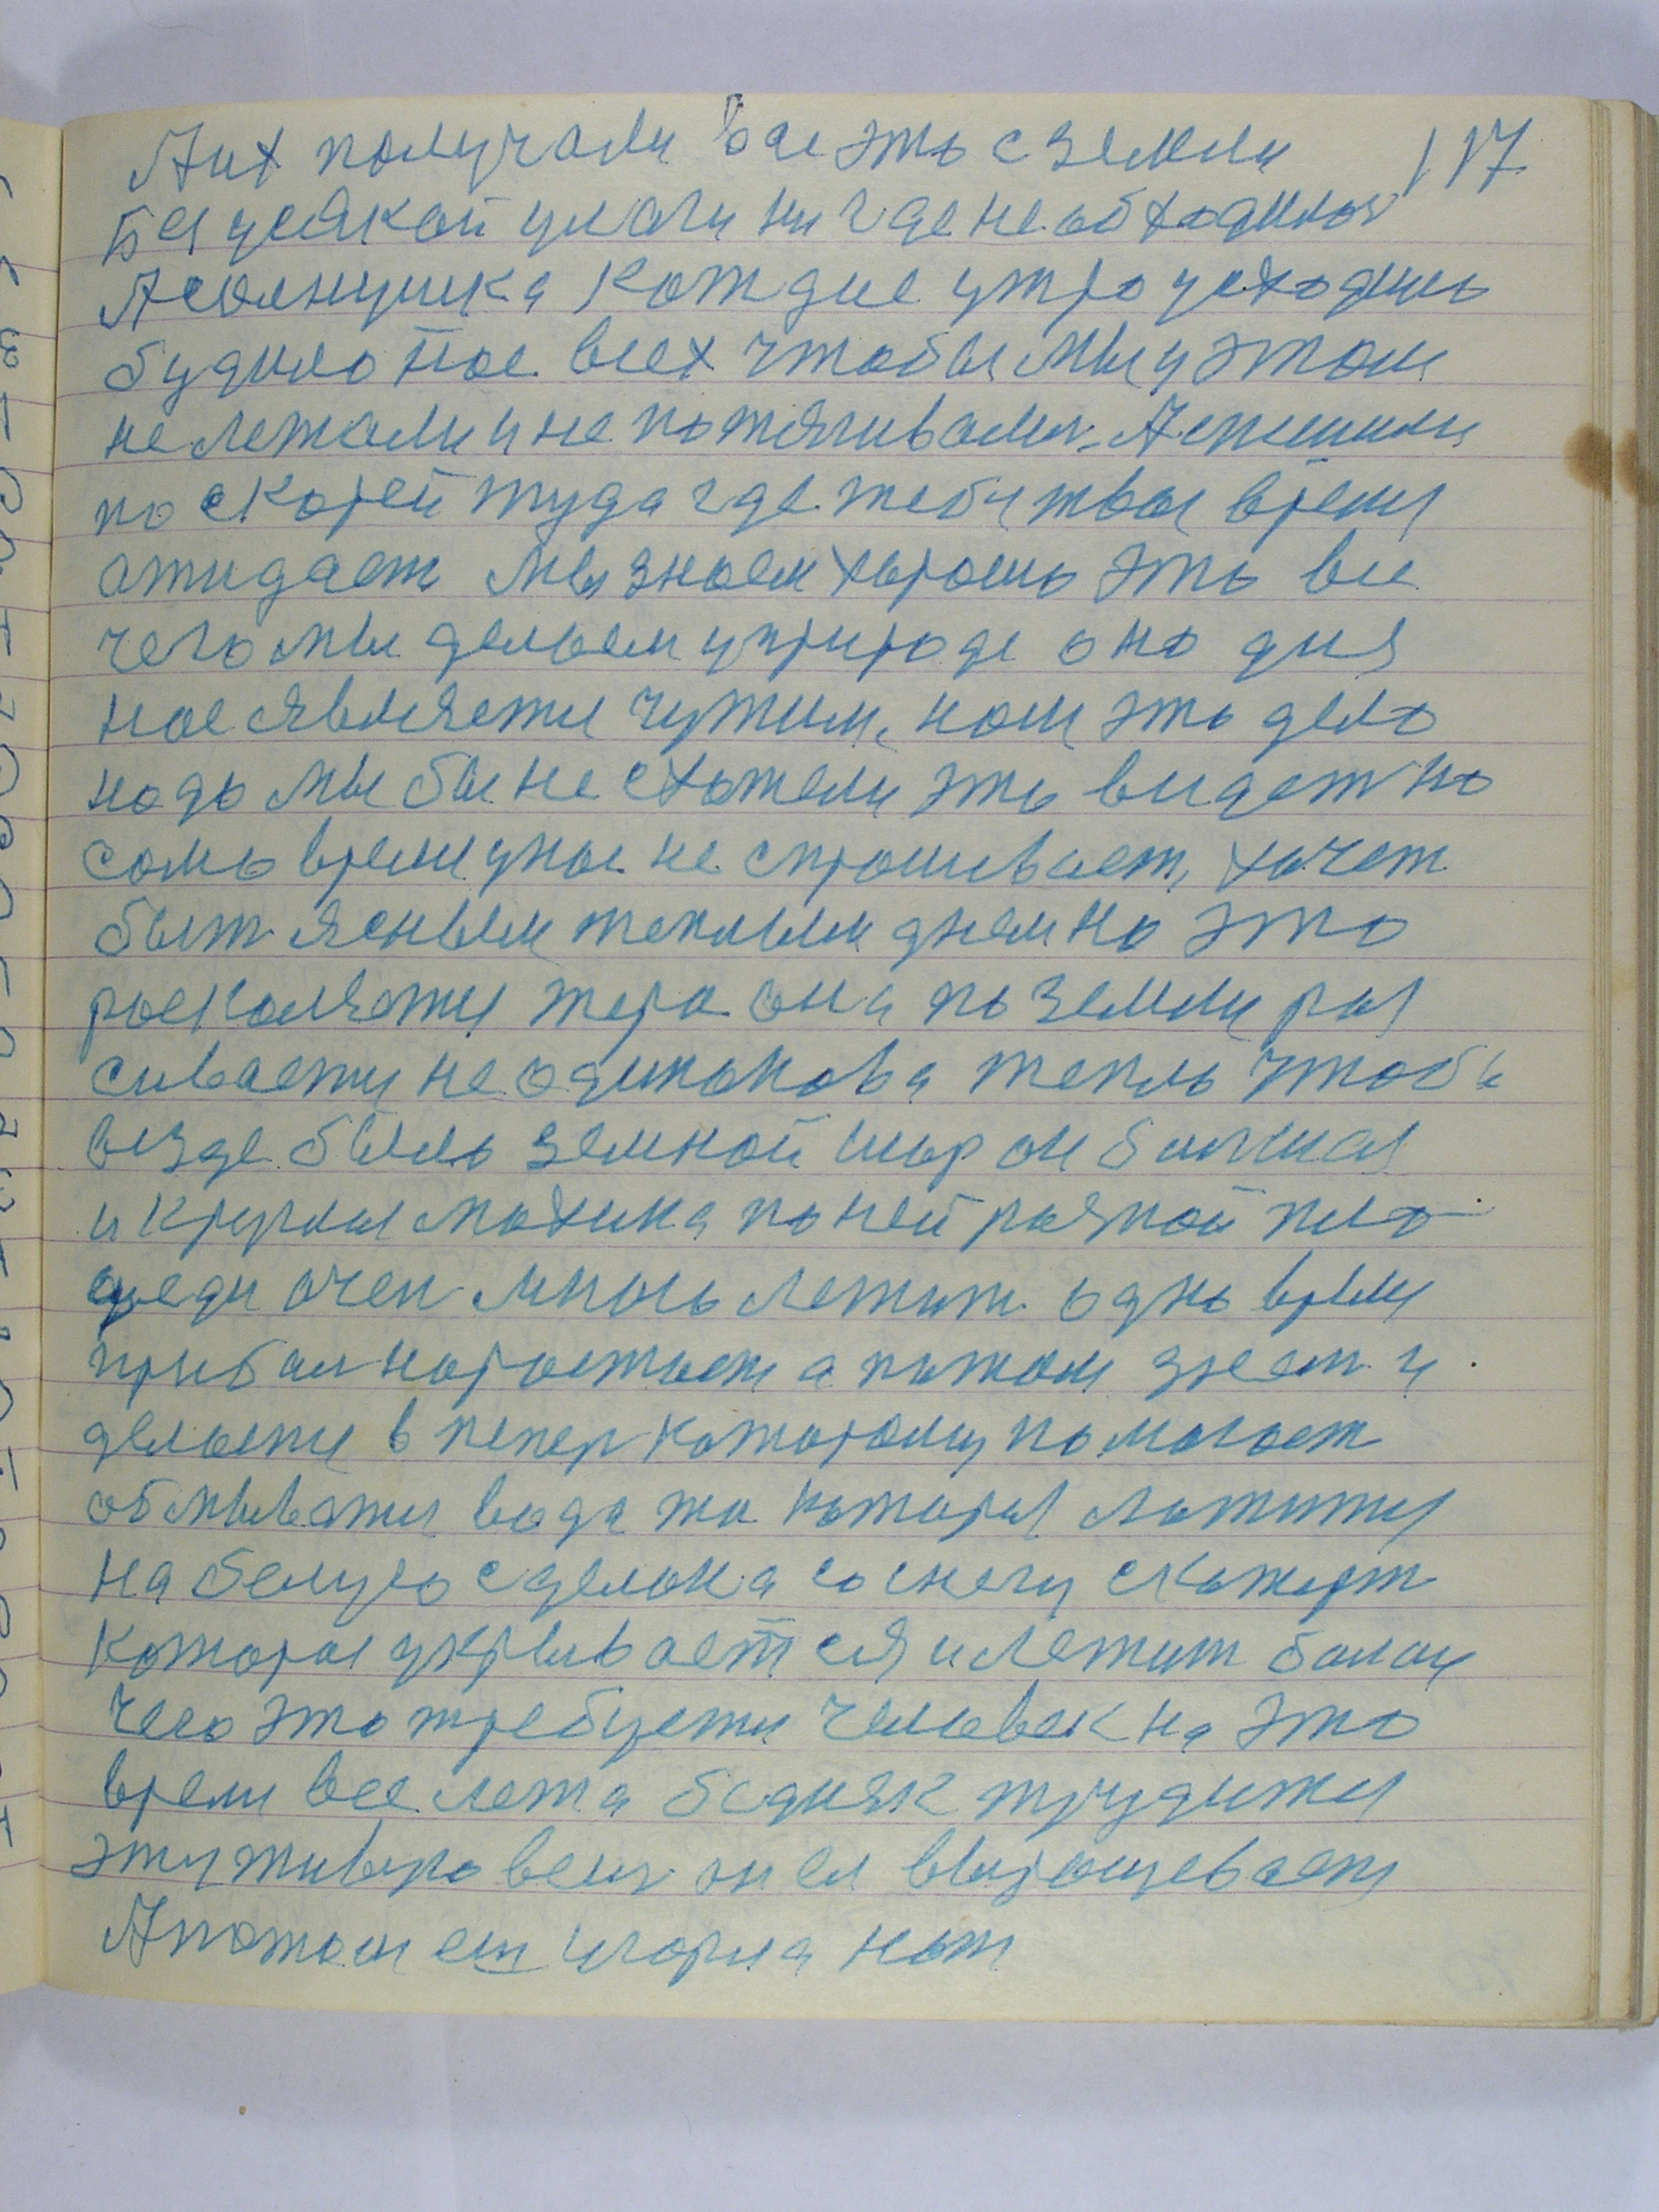 117
Аих получали все эть с земли
Без усякой улаги нигде необходилься
А солнушка каждие утро усходить
будило нас всех чтобы мы у этом
не лежали и не потягивались. А спешили
поскорей туда где тебя твое время
ожидает Мы знаем харошо эть все
чего мы делаем у природе оно для
нас является чужим, нам эть дело
надо мы бы не схотели эть видет но
самь время у нас не спрашивает, хочет
быт ясным теплым днем но это
расколяется жара она по земли рас
сивается не одинакова тепль чтобы
везде быль земной шар он большая
и круглая махина по ней разной пло
щеди очен многь лежит однь время
прибыл нарастает а патом зреет и
делается в пепер каторому помогает
обмыватся вода та каторая ложится
на белую сделана со снегу скатерт
каторая укрываетця и лежит болии
чего это требуется человек на это
время все лета бедняк трудится
эту живую вещ он ея выращевает
А потом ей игорла нет